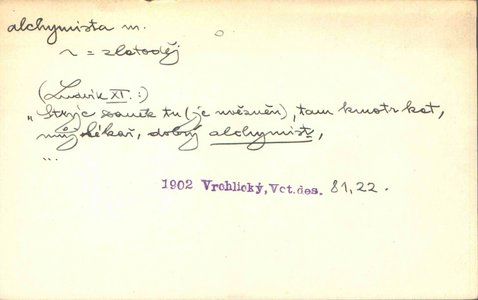 alchymista m.
~ = zlatoděj
(Ludvík XI. :)
„Strýc zamčk tu (je uvězněn), tam kmotr kat,
můj lékař, dobrý alchymist,
...
1902 Vrchlický, Vct.des. 81, 22.